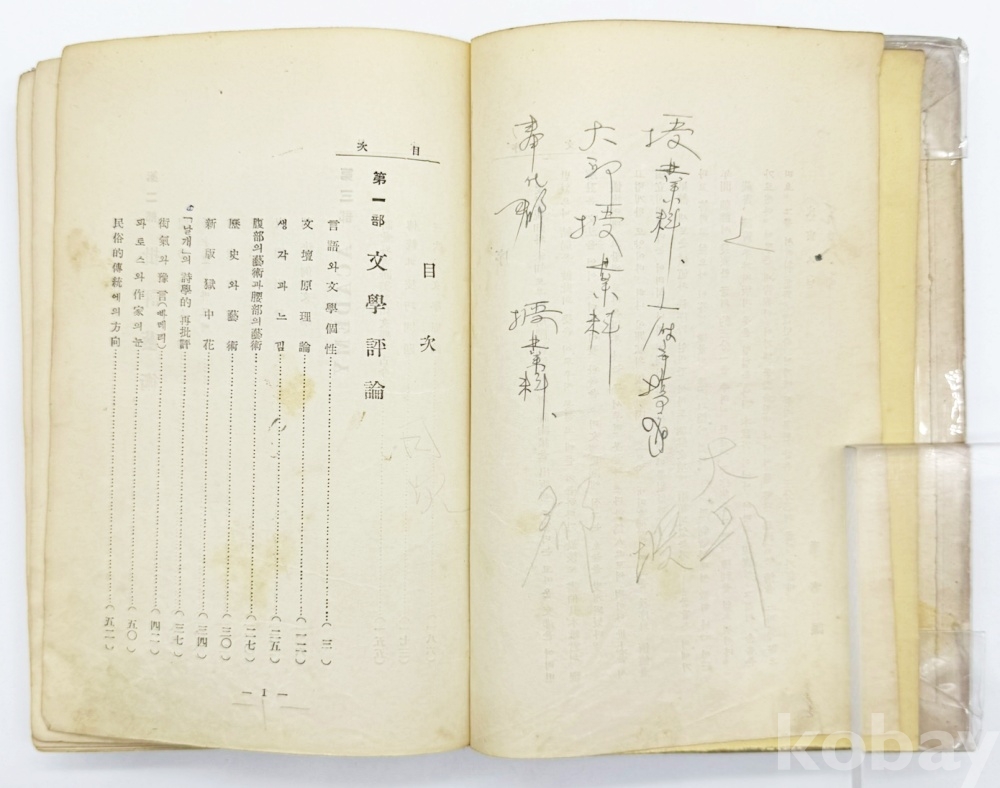 授業料、
大邱授業料
奉化郡 授業料、
大邱
目次
目次
第一部 文學評論
言語와文學個性……(三)
文壇原理論……(二二)
생각과느낌……(二五)
腹部의藝術과腰部의藝術……(二七)
歷史와藝術……(三〇)
新版獄中花……(三四)
「날개」의詩學的再批評……(三七)
衒氣와豫言……(四二)
파로스와作家의눈……(五〇)
民俗的傳統에의方向……(五二)
— 1 —
kobay